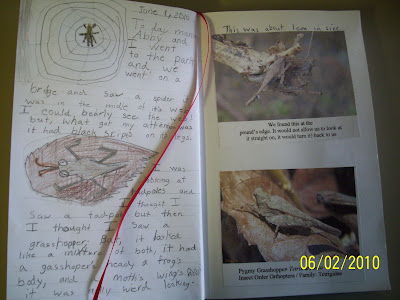 June 1, 2010
To day mom
Abby and
I went
to the park
and we
went on a
bridge and saw a spider it
was in the middle of it's web
I could bearly see the web!
but what got my attenson was
it had black stripes on it's legs.
I was
looking at
tadpoles and
I thought I
Saw a tadpole but then
I thought I saw a
grasshopper. But, it looked
like a mixture of both, it had
a gasshopers heady a frog's
body, and a moth's wing's
it was very werd looking.
This was about 1cm in size.
We found this at the
pound's edge. It would not allow us to look at
it straight on, it would turn it's back to us
Pygmy Grasshopper-
Insect Order Orthoptera / Family: Tetrigidae
06/02/2010